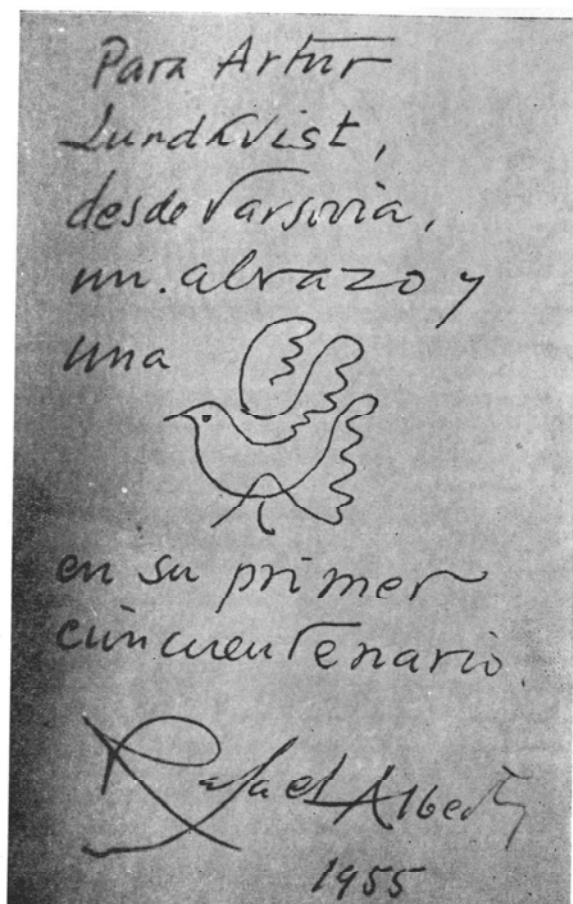 Para Artur
Lundkvist,
desde Varsovia,
un abrazo y
una
en su primer
cincuentenario.
Rafael Alberti
1955